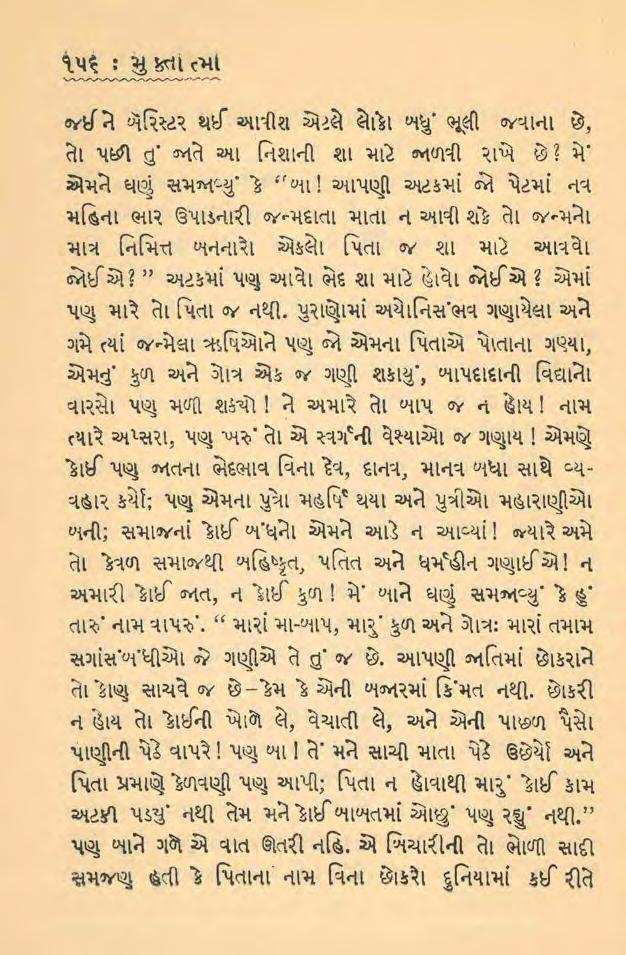 ૧૫૬ : મુક્તાત્મા
જઈને બૅરિસ્ટર થઈ આવીશ એટલે લોકો બધું ભૂલી જવાના છે,
તો પછી તું જાતે આ નિશાની શા માટે જાળવી રાખે છે? મેં
એમને ઘણું સમજાવ્યું કે “બા! આપણી અટકમાં જો પેટમાં નવ
મહિના ભાર ઉપાડનારી જન્મદાતા માતા ન આવી શકે તો જન્મનો
માત્ર નિમિત્ત બનનારો એકલો પિતા જ શા માટે આવવો
જોઈએ?” અટકમાં પણ આવો ભેદ શા માટે હોવો જોઈએ? એમાં
પણ મારે તો પિતા જ નથી. પુરાણોમાં અયોનિસંભવ ગણાયેલા અને
ગમે ત્યાં જન્મેલા ઋષિઓને પણ જો એમના પિતાએ પોતાના ગણ્યા,
એમનું કુળ અને ગોત્ર એક જ ગણી શકાયું, બાપદાદાની વિદ્યાનો
વારસો પણ મળી શક્યો! ને અમારે તો બાપ જ ન હોય! નામ
ત્યારે અપ્સરા, પણ ખરું તો એ સ્વર્ગની વેશ્યાઓ જ ગણાય! એમણે
કોઈ પણ જાતના ભેદભાવ વિના દેવ, દાનવ, માનવ બધા સાથે વ્ય-
વહાર કર્યો; પણ એમના પુત્રો મહર્ષિ થયા અને પુત્રીઓ મહારાણીઓ
બની; સમાજનાં કોઈ બંધનો એમને આડે ન આવ્યાં! જ્યારે અમે
તો કેવળ સમાજથી બહિષ્કૃત, પતિત અને ધર્મહીન ગણાઈએ! ન
અમારી કોઈ જાત, ન કોઈ કુળ! મેં બાને ઘણું સમજાવ્યું કે હું
તારું નામ વાપરું. “ મારાં મા-બાપ, મારું કુળ અને ગોત્રઃ મારાં તમામ
સગાંસંબંધીઓ જે ગણીએ તે તું જ છે. આપણી જાતિમાં છોકરાને
તો કોણ સાચવે જ છે – કેમ કે એની બજારમાં કિંમત નથી. છોકરી
ન હોય તો કોઈની ખોળે લે, વેચાતી લે, અને એની પાછળ પૈસો
પાણીની પેઠે વાપરે! પણ બા! તેં મને સાચી માતા પેઠે ઉછેર્યો અને
પિતા પ્રમાણે કેળવણી પણ આપી; પિતા ન હોવાથી મારું કોઈ કામ
અટકી પડ્યું નથી તેમ મને કોઈ બાબતમાં ઓછું પણ રહ્યું નથી.”
પણ બાને ગળે એ વાત ઊતરી નહિ. એ બિચારીની તો ભોળી સાદી
સમજણ હતી કે પિતાના નામ વિના છોકરો દુનિયામાં કઈ રીતે